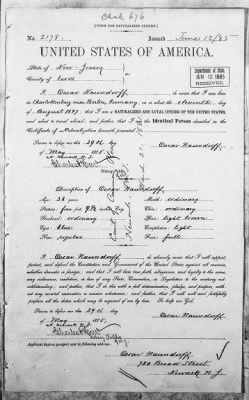 [FOR THE NATURALIZED CITIZEN.]
No. 2178. Issued June 12/85
UNITED STATES OF AMERICA.
State of New Jersey
County of Essex
Department of State,
JUN 12 1885
RECEIVED.
I, Oscar Naundorff, do swear that I was born
in Charlottenburg near Berlin, Germany, on or about the
day of August 1847, that I am a NATURALIZED AND LOYAL CITIZEN OF THE UNITED STATES,
and about to travel abroad, and further, that I am the Identical Person described in the
Certificate of Naturalization herewith presented.
Sworn to before me this 29th day
of May 1885
Oscar Naundorff.
Notary Public.
Description of Oscar Naundorff.
Age: 38 years Mouth: ordinary
Stature: five feet Chin: ordinary
Forehead: ordinary Hair: light brown
Eyes: blue Complexion: light
Nose: regular Face: full
I, Oscar Naundorff, do solemnly swear that I will support,
protect, and defend the Constitution and Government of the United States against all enemies,
whether domestic or foreign; and that I will bear true faith, allegiance, and loyalty to the same,
any ordinance, resolution, or law of any State, Convention, or Legislature to the contrary notwithstanding;
and further, that I do this with a full determination, pledge, and purpose, without
any mental reservation or evasion whatsoever; and further, that I will well and faithfully
perform all the duties which may be required of me by law. So help me God.
Sworn to before me this 29th day
of May 1885
Oscar Naundorff
Notary Public
Applicant desires passport sent to following address:
Oscar Naundorff,
780 Broad Street
Newark N. J.